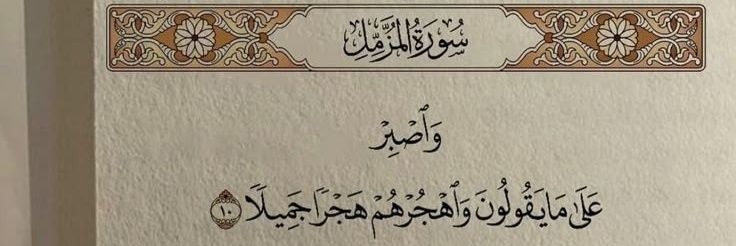 سُورَةُ المُزَّمِّلِ
وَٱصْبِرْ
عَلَىٰ مَا يَقُولُونَ وَٱهْجُرْهُمْ هَجْرًا جَمِيلًا ۝١٠